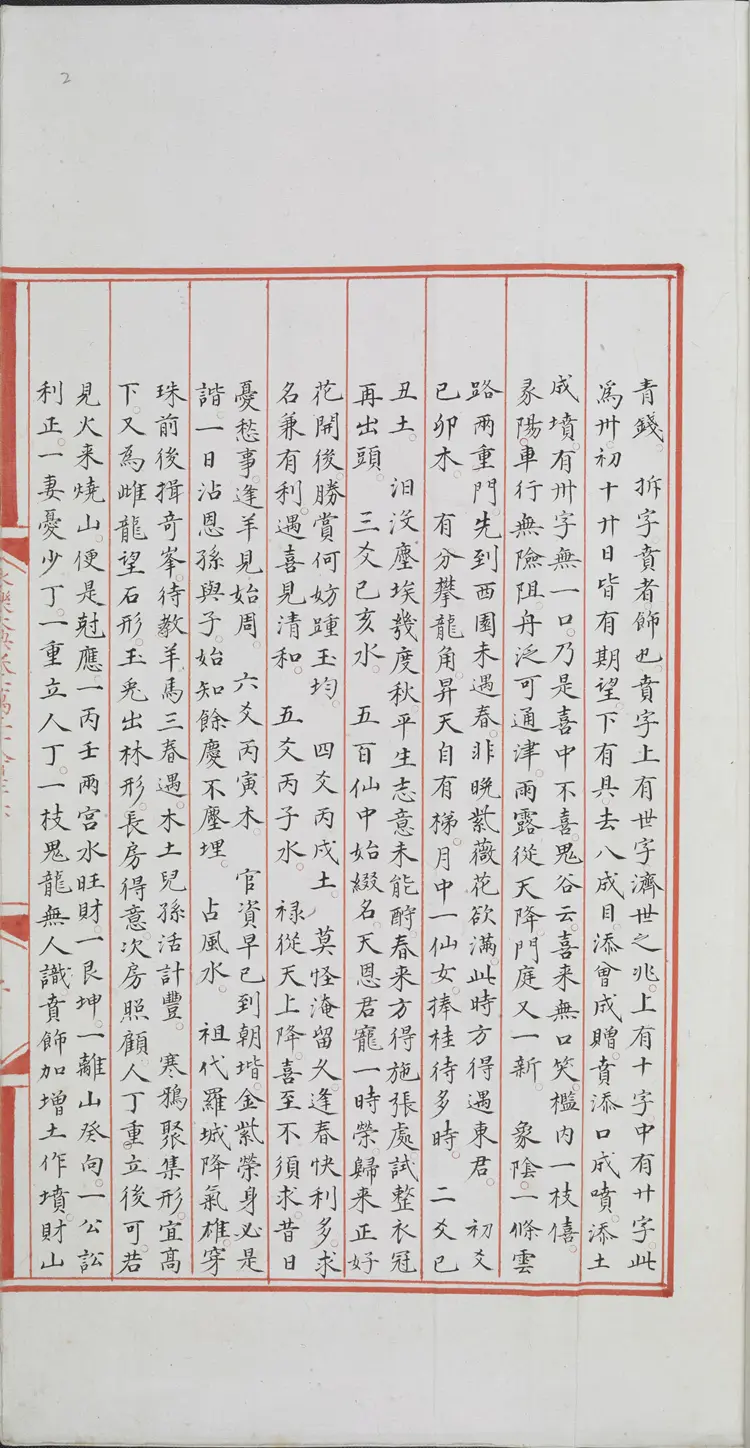 2
青錢。 拆字賁者飾也。賁字上有世字濟世之兆。上有十字中有廿字此
爲卅。初十廿日皆有期望。下有具。去八成目。添會成贈。賁添口成噴。添土
成墳。有卅字無一口。乃是喜中不喜。鬼谷云。喜来無口笑。檻内一枝僖。
彖陽。車行無險阻。舟泛可通津。雨露從天降。門庭又一新。 象陰。一條雲
路兩重門。先到西園未遇春。非晚紫薇花欲滿。此時方得遇東君。 初爻
己卯木。 有分攀龍角。昇天自有梯。月中一仙女。捧桂待多時。 二爻己
丑土。 汨没塵埃幾度秋。平生志意未能酧。春来方得施張處。試整衣冠
再出頭。 三爻己亥水。 五百仙中始綴名。天恩君寵一時榮。歸来正好
花開後。勝賞何妨踵玉均。 四爻丙戌土。 莫怪淹留久。逢春快利多。求
名兼有利。遇喜見清和。 五爻丙子水。 禄從天上降。喜至不須求。昔日
憂愁事。逢羊見始周。 六爻丙寅木。 官資早已到朝堦。金紫榮身必是
諧。一日沾恩孫與子。始知餘慶不塵埋。 占風水。 祖代羅城降氣雄。穿
珠前後揖奇峯。待教羊馬三春遇。木土兒孫活計豐。 寒鴉聚集形。宜高
下。又爲雌龍望石形。玉兎出林形。長房得意。次房照顧。人丁重立後可。若
見火来燒山。便是尅應。一丙壬兩宮水旺財。一艮坤。一離山癸向。一公訟
利正。一妻憂少丁。一重立人丁。一枝鬼龍無人識。賁飾加增土作墳。財山